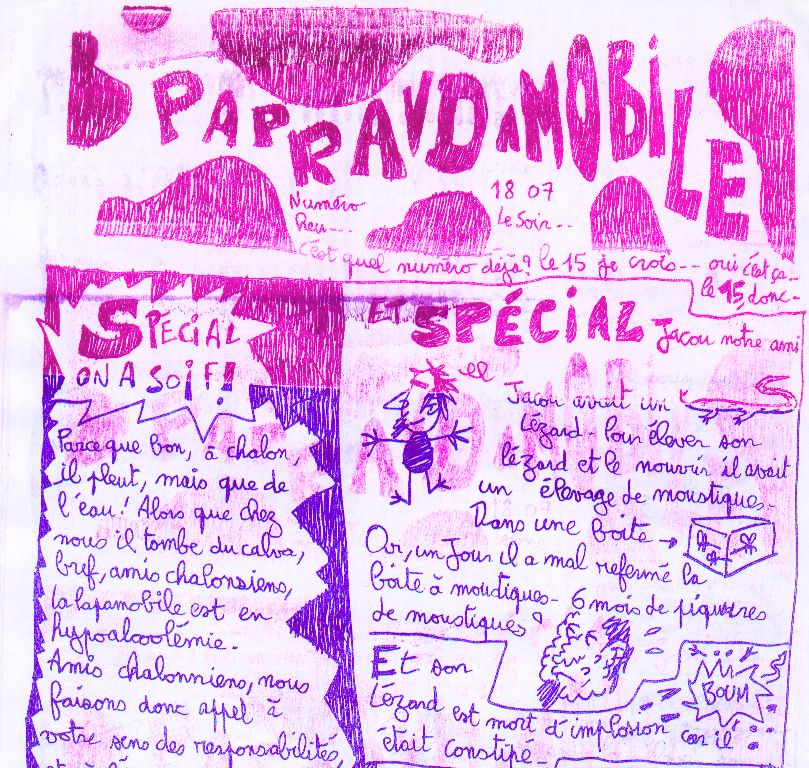 PAPRAVDAMOBILE
Numéro
Heu---
18 07
Le Soir--
C'est quel numéro déjà? le 15 je crois-- oui c'est ça--
le 15, donc-
SPÉCIAL
ON A SOIF!
Parce que bon, à chalon,
il pleut, mais que de
l'eau! Alors que chez
nous il tombe du calva,
bref, amis chalonsiens,
la lapamobile est en
hypoalcoolémie.
Amis chalonniens, nous
faisons donc appel à
votre sens des responsabilités,
ET SPÉCIAL Jacou notre ami
Jacou avait un
Lézard- Pour élever son
lézard et le nourrir il avait
un élevage de moustiques-
Dans une boite →
Or, un Jour il a mal refermé la
boite à moustiques- 6 mois de piqures
de moustiques
Et son
Lézard est mort d'implosion car il
était constipé-
BOUM